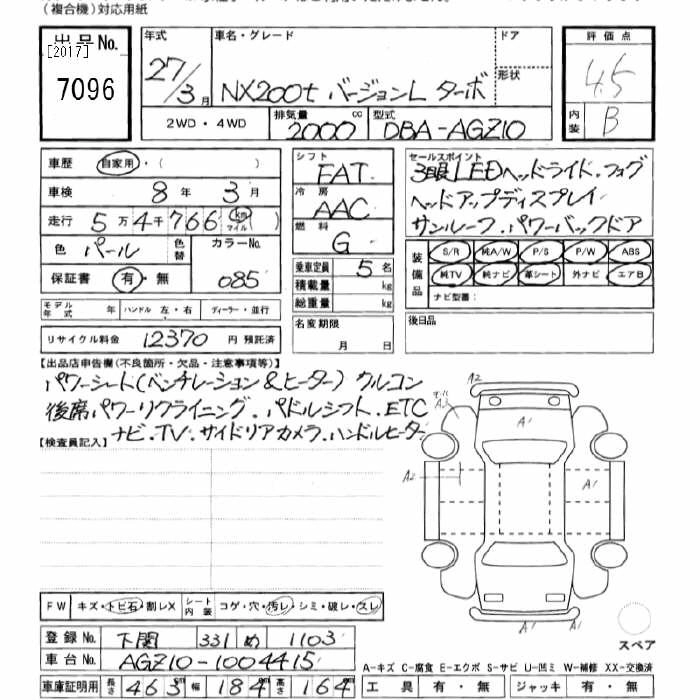 (複合機)対応用紙
出品No.
[2017]
7096
年式
27/3月
車名・グレード
NX200t バージョンL ターボ
ドア
形状
評価点
4.5
内装
B
2WD・4WD
排気量
2000
cc
型式
DBA-AGZ10
車歴 自家用・( )
車検 8年 3月
走行 5万4千766 km マイル ( )
色 パール
色替
カラーNo.
085
保証書 有・無
シフト
FAT
冷房
AAC
燃料
G
乗車定員 5名
積載量 kg
総重量 kg
名変期限
月 日
セールスポイント
3眼LEDヘッドライド・フォグ
ヘッドアップディスプレイ
サンルーフ・パワーバックドア
装備品
S/R 純A/W P/S P/W ABS
純TV 純ナビ 革シート 外ナビ エアB
ナビ型番:
後日品
モデル年式 年 ハンドル 左・右 ディーラー・並行
リサイクル料金 12370 円 預託済
【出品店申告欄(不良箇所・欠品・注意事項等)】
パワーシート(ベンチレーション&ヒーター) クルコン
後席パワーリクライニング・パドルシフト・ETC
ナビ・TV・サイドリアカメラ・ハンドルヒーター
【検査員記入】
A2
A3
A1
A2
A1
A1
A2
スペア
FW キズ・トビ石・割レX
シート内装 コゲ・穴・汚レ・シミ・破レ・スレ
登録No. 下関 331 め 1103
車台No. AGZ10-1004415
車庫証明用 長さ 463m 幅 184m 高さ 164m
A-キズ C-腐食 E-エクボ S-サビ U-凹ミ W-補修 XX-交換済
工具 有・無 ジャッキ 有・無